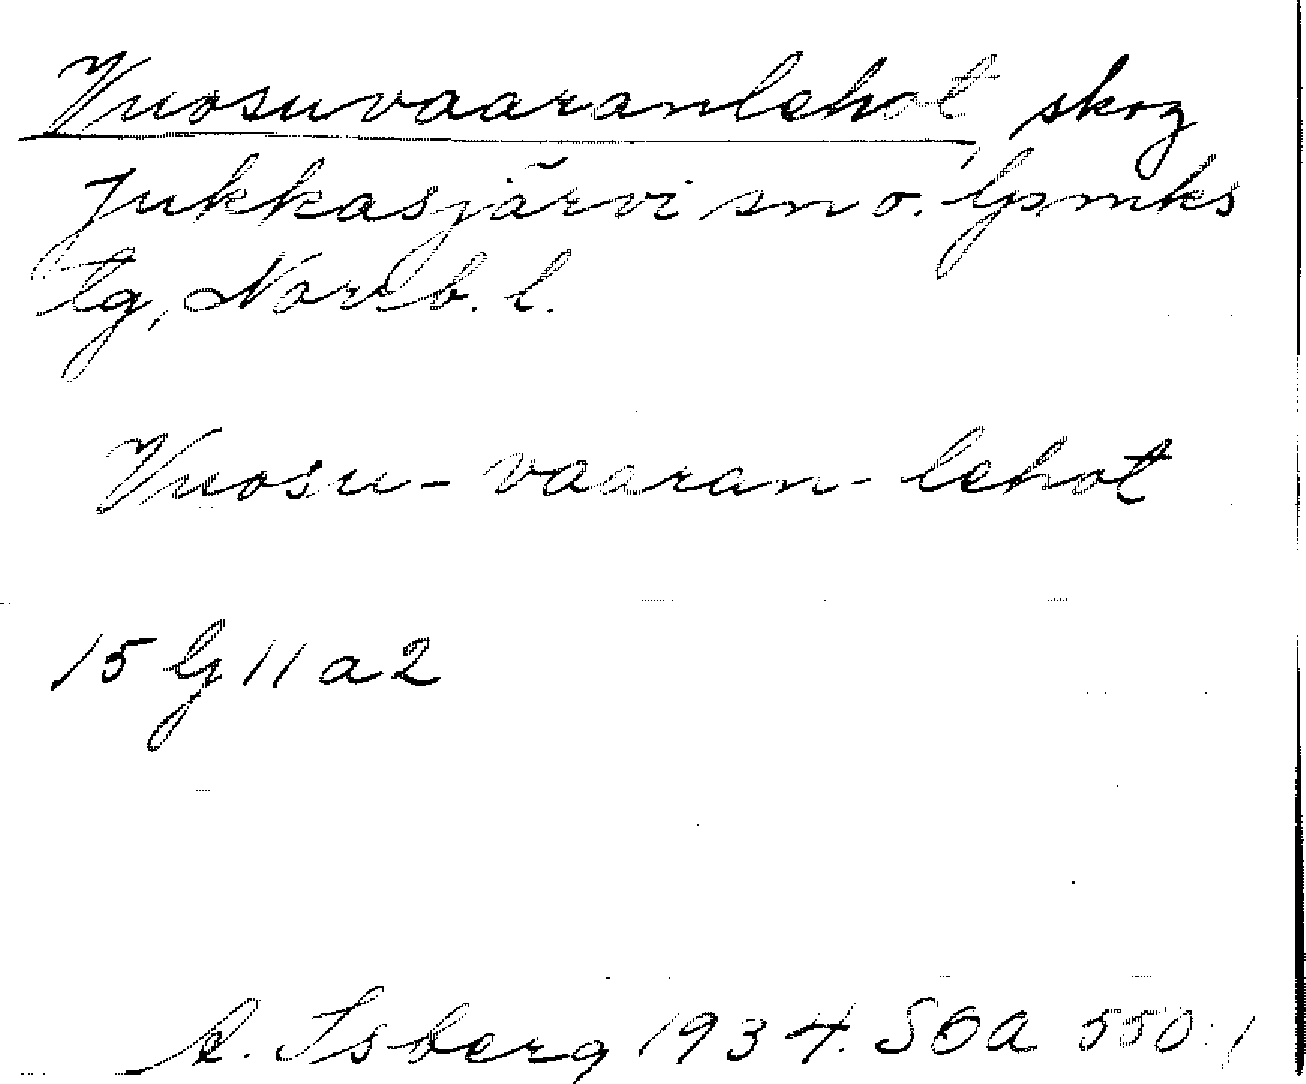 Vuosuvaaranlehot, skog
Jukkasjärvi sn o. lpmks
tg, Norrb. l.
Vuosu- vaaran- lehot
15 G 11 a 2
A. Isberg 1934. SOA 550:1